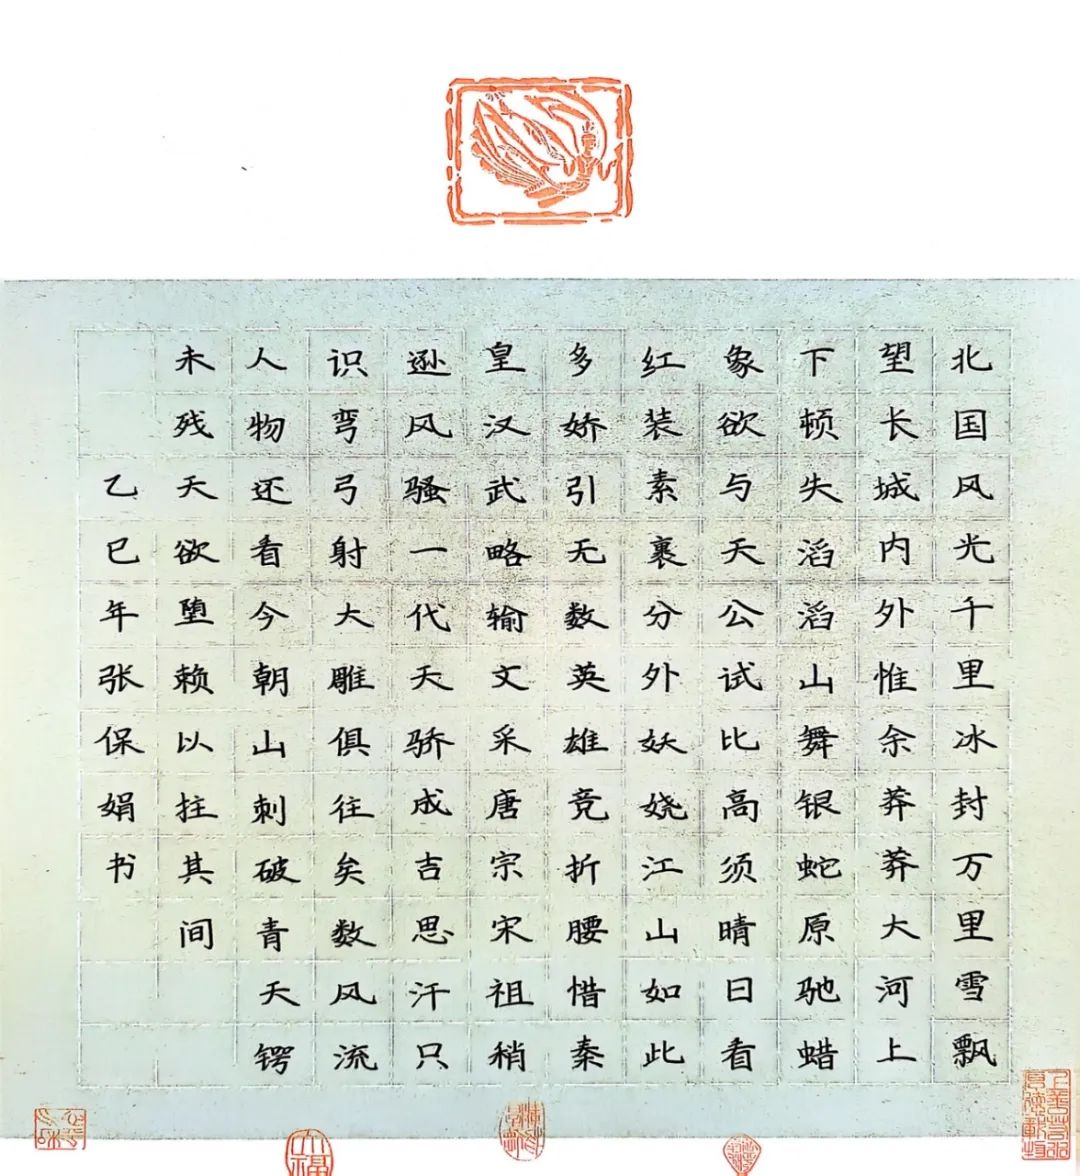 北国风光千里冰封万里雪飘
望长城内外惟余莽莽大河上
下顿失滔滔山舞银蛇原驰蜡
象欲与天公试比高须晴日看
红装素裹分外妖娆江山如此
多娇引无数英雄竞折腰惜秦
皇汉武略输文采唐宗宋祖稍
逊风骚一代天骄成吉思汗只
识弯弓射大雕俱往矣数风流
人物还看今朝山刺破青天锷
未残天欲堕赖以拄其间
乙巳年张保娟书
上善若水
厚德载物